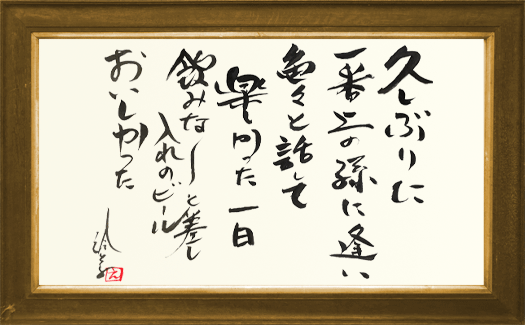 久しぶりに
一番上の孫に逢い
色々と話して
楽しかった一日
飲みなしと差し
入れのビール
おいしかった